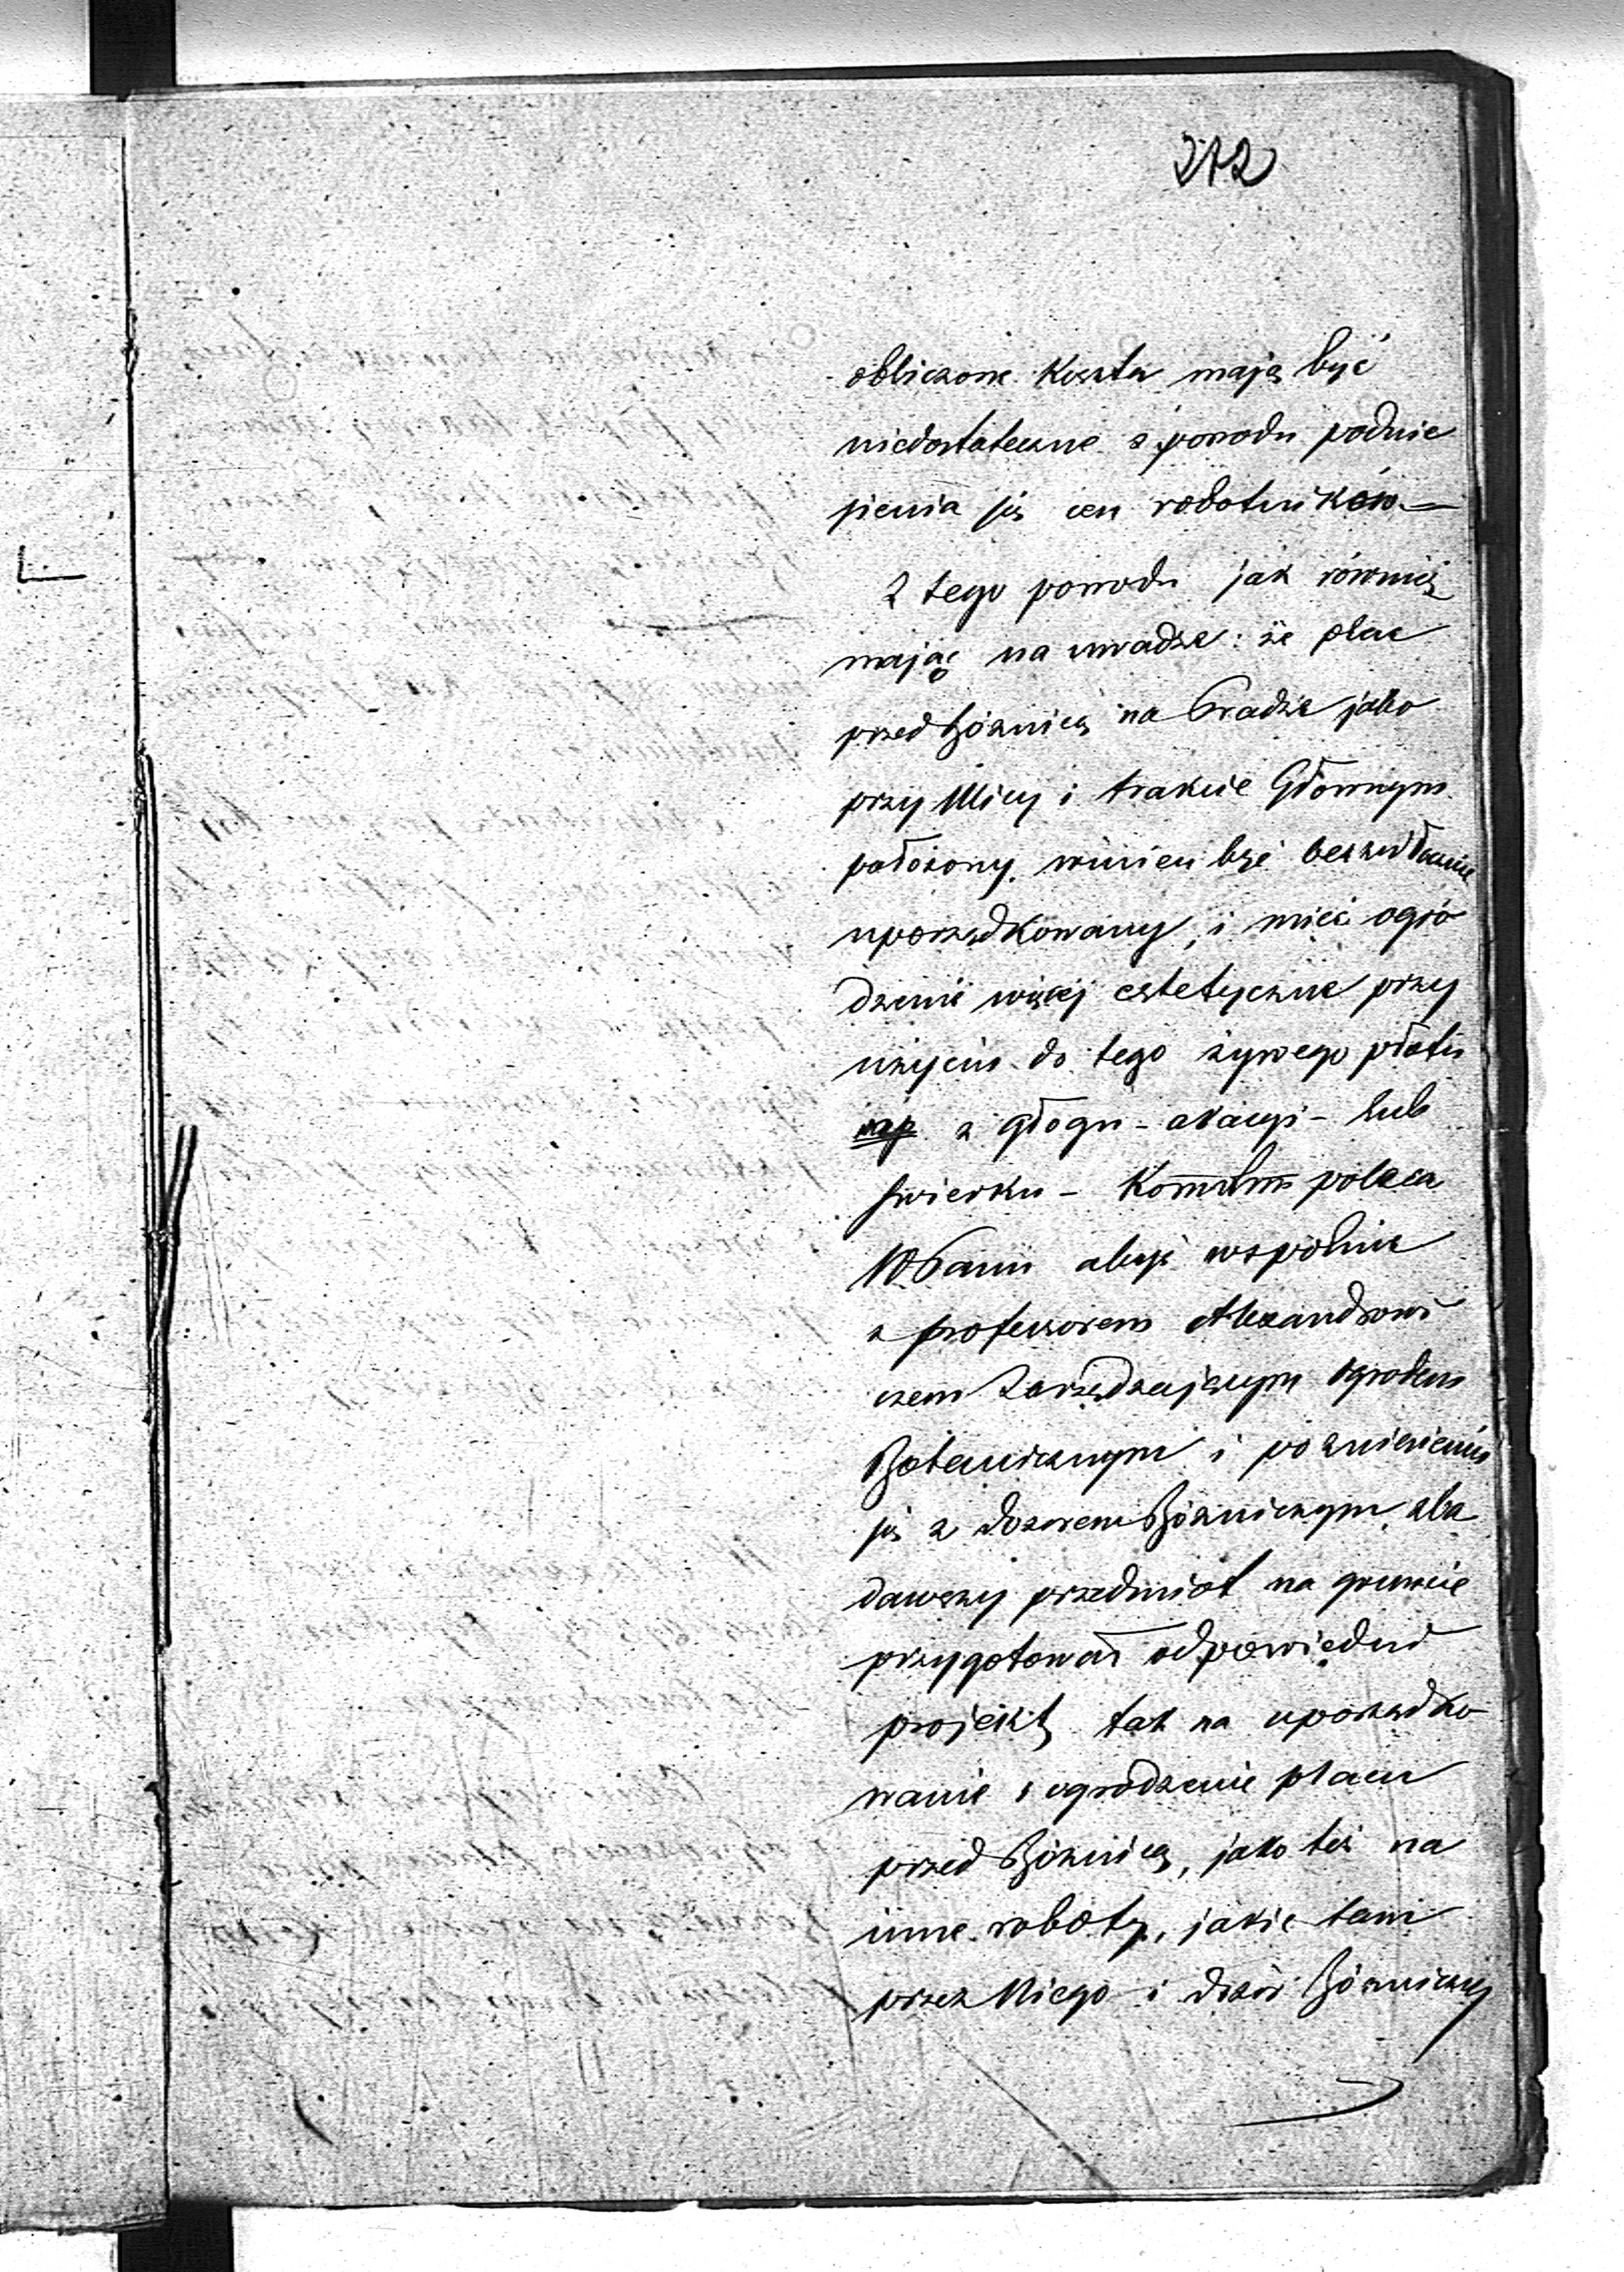 272
obliczone Koszta mają być
niedostateczne z powodu podnie
sienia się cen robotników —
Z tego powodu jak również
mając na uwadze: że plac
przed Bóżnicą na Pradze jako
przy Ulicy i trakcie Głównym
położony winien być bezzwłocznie
uporządkowany, i mieć ogro
dzenie więcej estetyczne przy
użyciu do tego żywego płotu
z głogu - akacyi - lub
świerku - poleca
WPanu abyś wspólnie
z professorem Alexandrowi
czem Zarządzającym Ogrodem
Botanicznym i po zniesieniu
się z dozorem Bóżniczym, zba
dawszy przedmiot na gruncie
przygotował odpowiedni
projekt, tak na uporządko
wanie i ogrodzenie placu
przed Bóżnicą, jako też na
inne roboty, jakie tam
przez Niego i dozór Bóżniczy